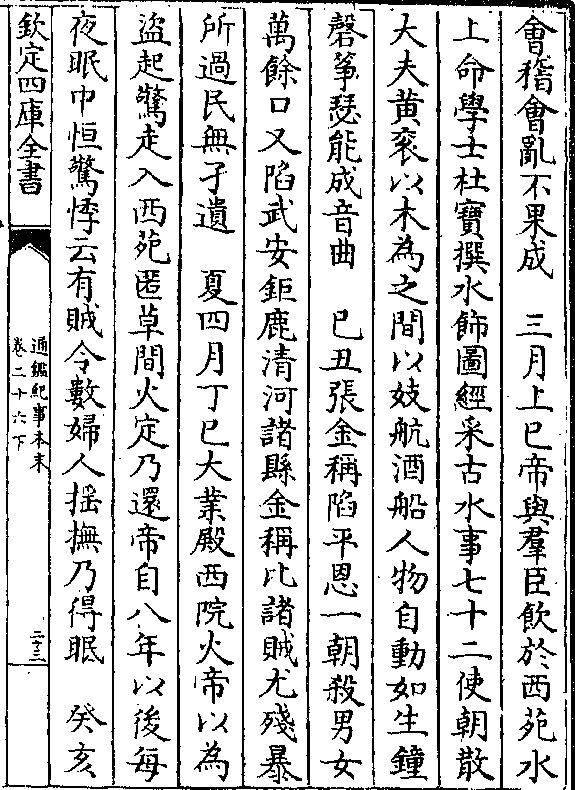 會稽會亂不果成　三月上巳帝與羣臣飲於西苑水
上命學士杜寶撰水飾圖經采古水事七十二使朝散
大夫黄衮以木為之間以妓航酒船人物自動如生鐘
磬筝瑟能成音曲　己丑張金稱陷平恩一朝殺男女
萬餘口又陷武安鉅鹿清河諸縣金稱比諸賊尤殘暴
所過民無孑遺　夏四月丁巳大業殿西院火帝以為
盜起驚走入西苑匿草間火定乃還帝自八年以後每
夜眠中恒驚悸云有賊令數婦人揺撫乃得眠　癸亥
欽定四庫全書
通鑑紀事本末
卷二十六下
二十三